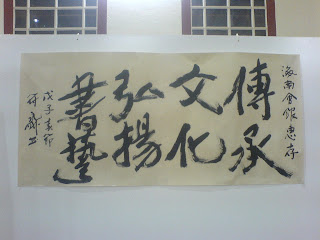 海南會館惠存
傳承
文化
弘揚
書藝
戊子春節